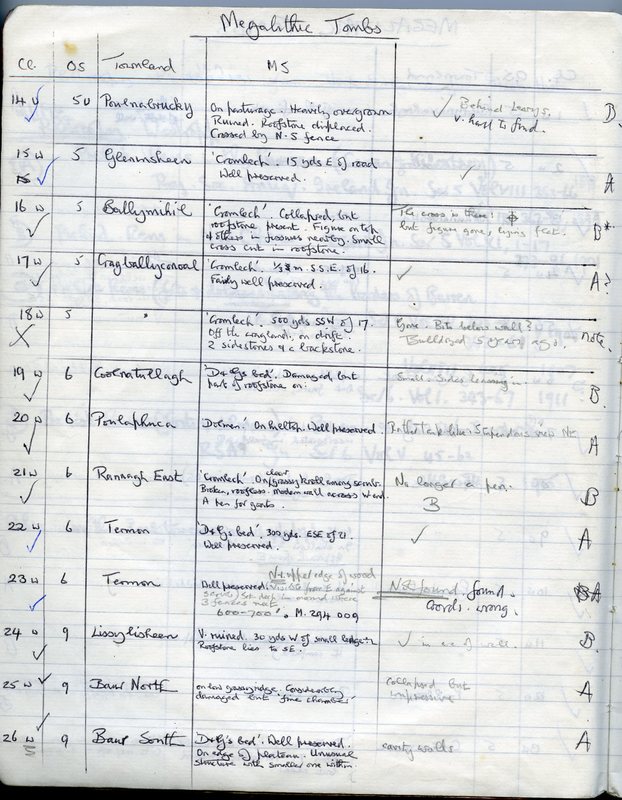 Megalithic Tombs
Cl. OS Townland MS
14 W 5 Poulnabrucky On pasturage. Heavily overgrown ✓ Behind Leary's. B
Ruined. Roofstone displaced. V. hard to find.
Crossed by N-S fence
15 W 5 Gleninsheen 'Cromlech'. 15 yds E of road ✓ A
Well preserved.
16 W 5 Ballymihil 'Cromlech'. Collapsed, but The cross is there! B*
roofstone present. Figure on top but figure gone, lying flat.
& others in fissures nearby. Small
cross cut in roofstone.
17 W 5 Cragballyconoal 'Cromlech'. m. S.S.E. of 16. ✓ A?
Fairly well preserved.
18 W 5 " 'Cromlech'. 500 yds SSW of 17. Gone. Bits below wall? note.
Off the craglands, on drift. Bulldozed 5 years ago.
2 sidestones & a backstone.
19 W 6 'D & G's bed'. Damaged but Small. Sides leaning in. B.
part of roofstone on.
20 W 6 Poulaphuca Dolmen' On hilltop. Well preserved. Rather tank like. Stupendous view A
21 W 6 Rannagh East 'Cromlech'. On clear grassy knoll among scrub. No longer a pen. B
Broken, roofless. Modern wall across W end. B
A pen for goats.
22 W 6 Termon 'D & G's bed'. 300 yds. ESE of 21. ✓ A
Well preserved.
23 W 6 Termon Well preserved. upper edge of wood Not found found. A
Coords. wrong.
3 fences meet
600-700'. M. 294 009
24 W 9 Lissylisheen V. ruined. 30 yds W of small ✓ in of wall. B.
Roofstone lies to SE.
25 W 9 Baur North on low grassy ridge. Considerably collapsed but A
damaged but 'fine chamber' impressive
26 W 9 Baur South 'D & G's bed'. Well preserved. cavity walls A
On edge of plateau. Unusual
structure with smaller one within.